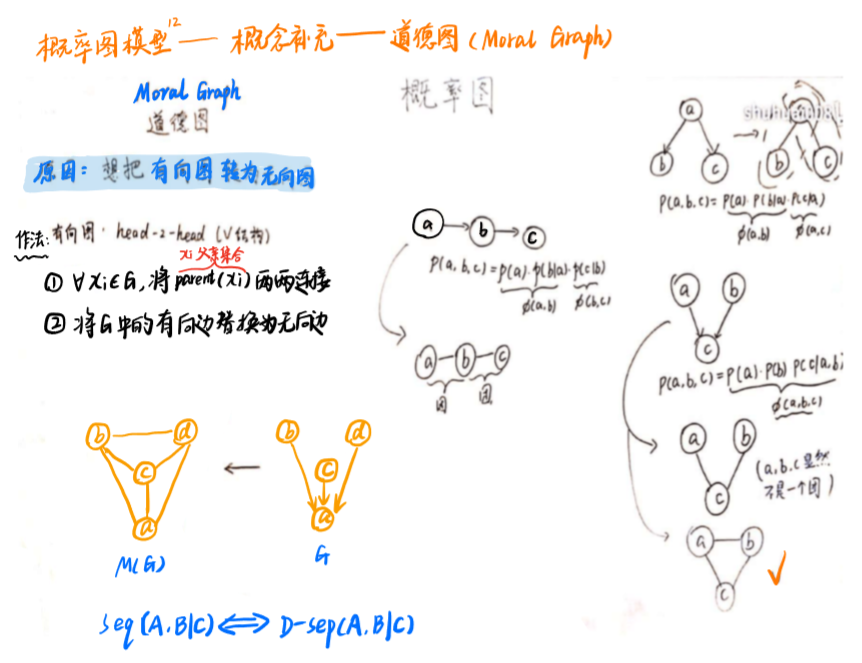 概率图模型12——概念补充——道德图(Moral Graph)
Moral Graph
道德图
原因：想把有向图转为无向图
作法:有向图·head-2-head (V结构)
xi父亲集合
① ∀xi∈G,将parent(xi)两两连接
② 将G中的有向边替换为无向边
b d
c
a
M(G)
←
b d
c
a
G
Seq(A.B|C)⇔D-sep(A.B|C)
概率图
a b c
P(a,b,c)=p(a)·p(b|a)·p(c|b)
φ(a,b) φ(b,c)
a b c
团 团
a
b c
a
b c
P(a,b,c)=P(a)·P(b|a)·P(c|a)
φ(a,b) φ(a,c)
a b
c
P(a,b,c)=P(a)·P(b) P(c|a,b)
φ(a,b,c)
a b
c
(a,b,c显然
不是一个团)
a b
c
✓